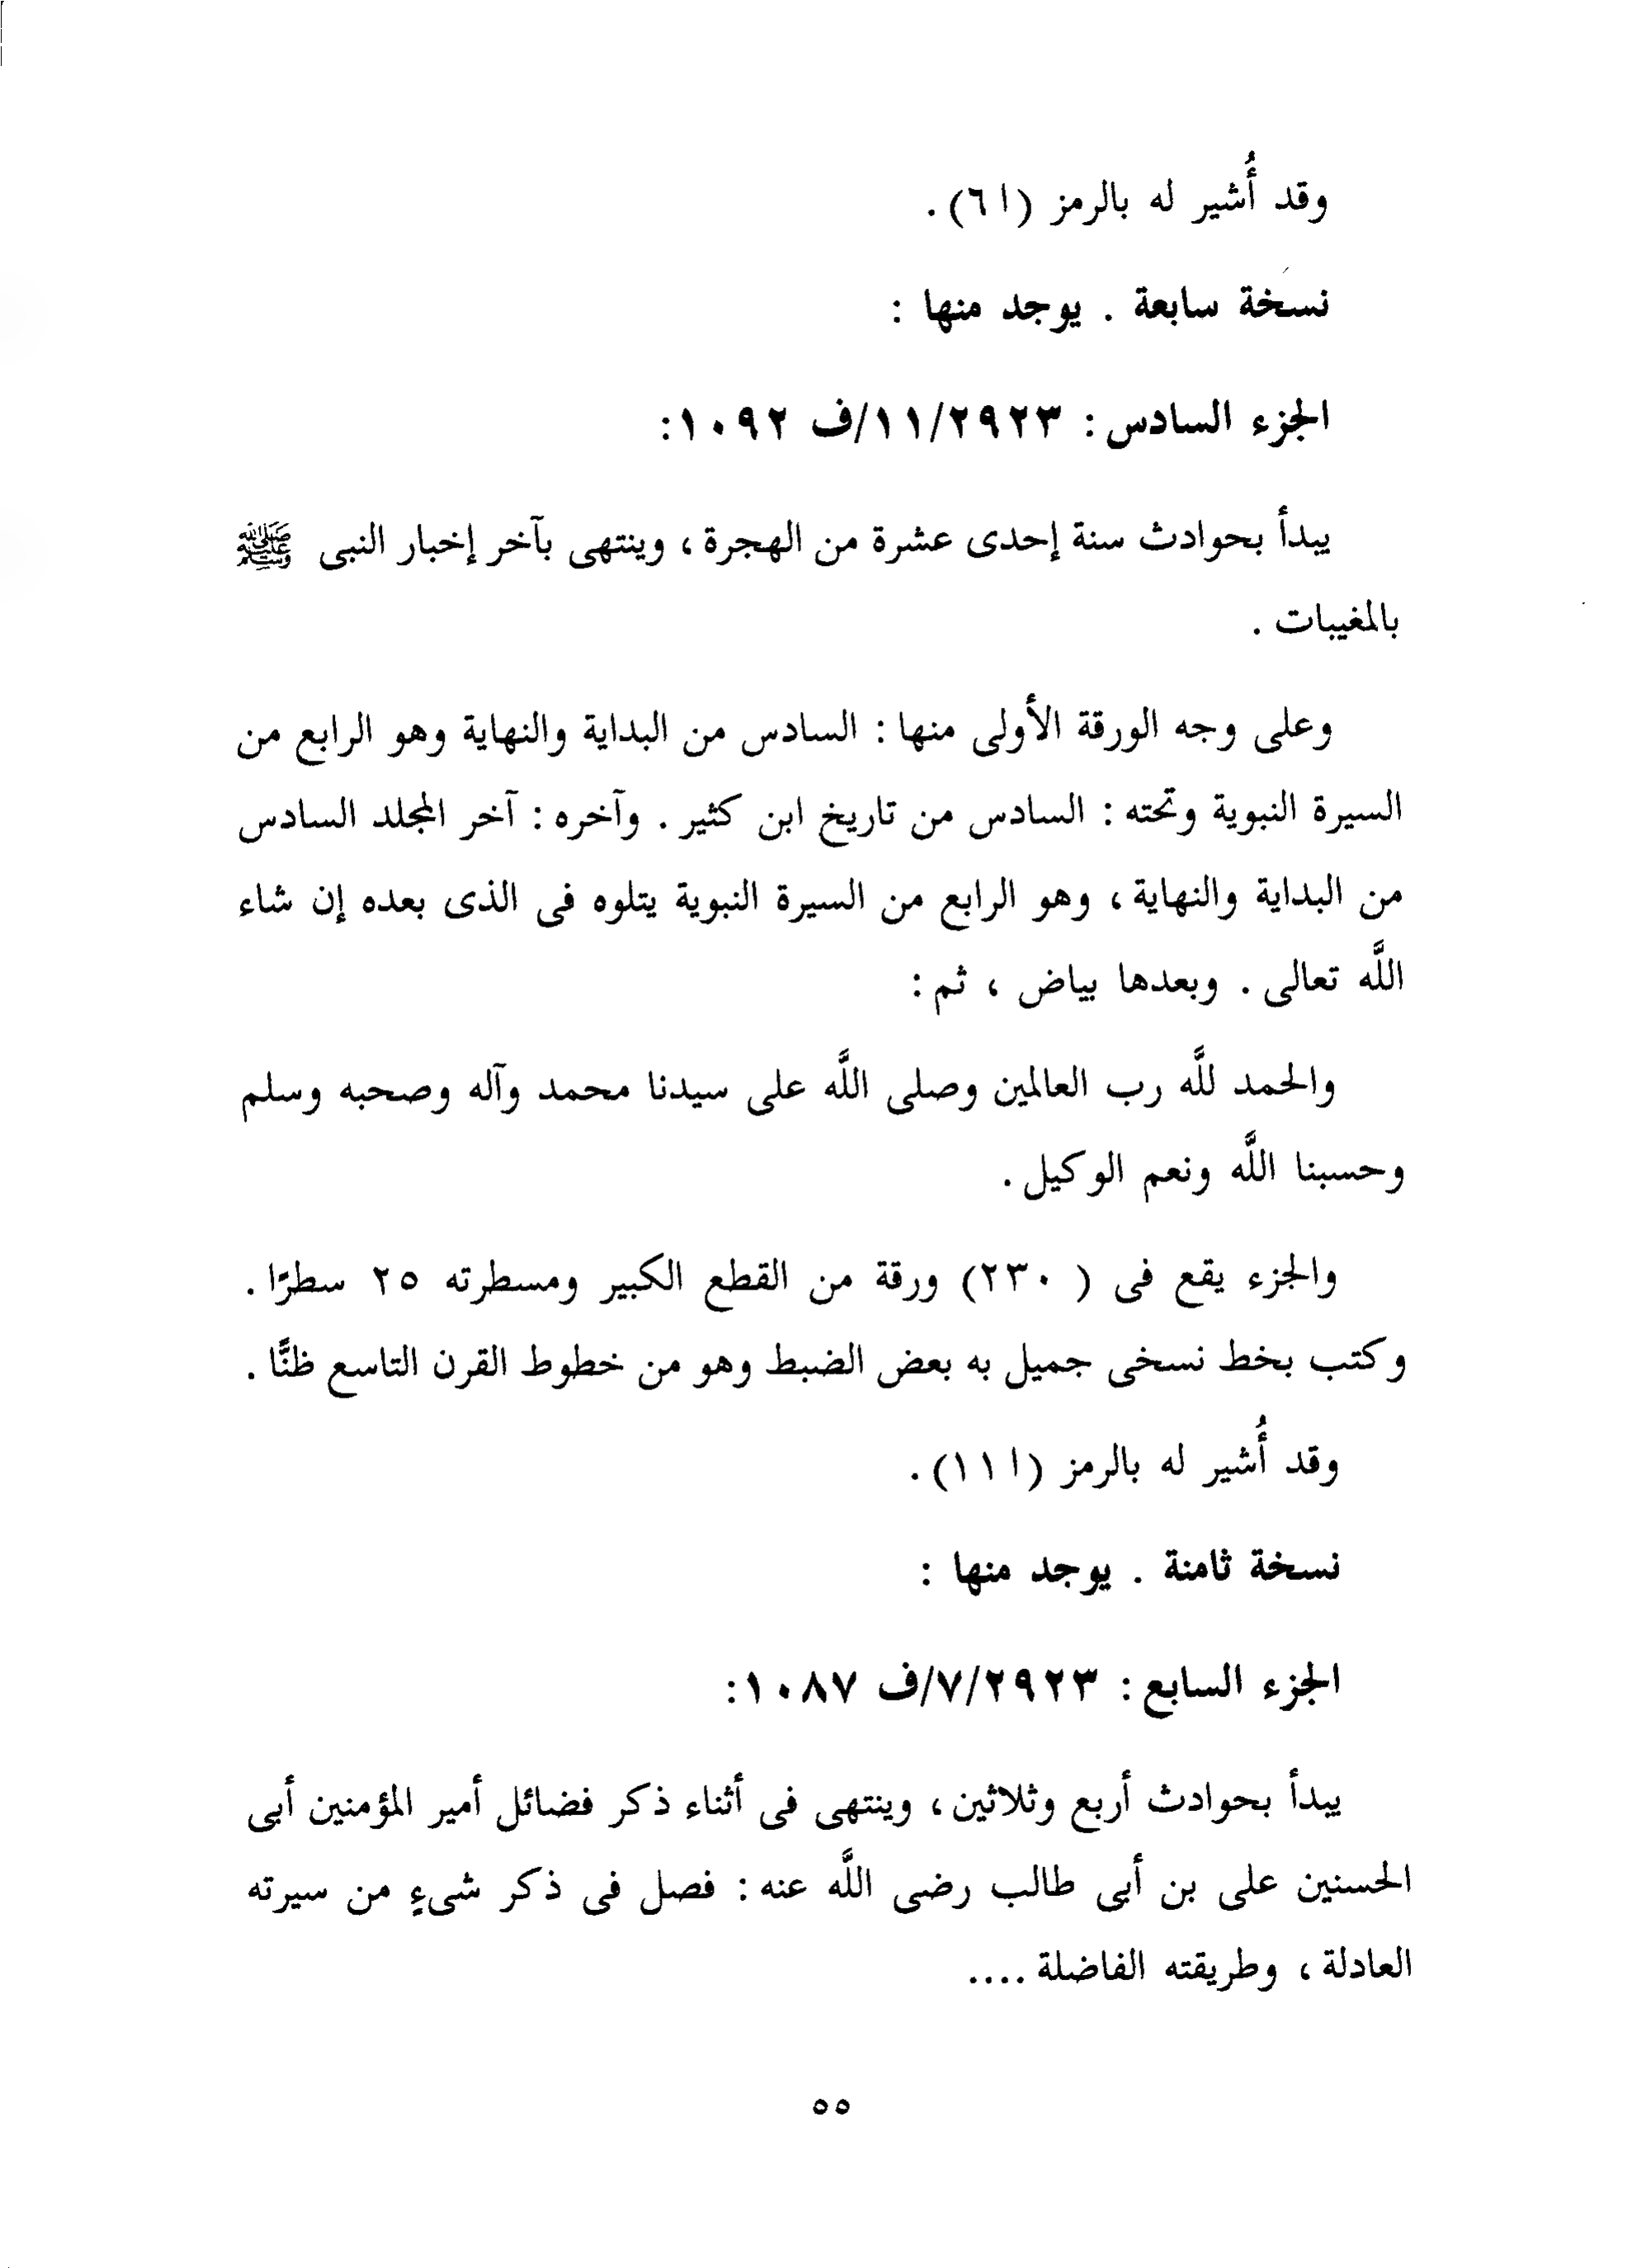 وقد أُشير له بالرمز (ا ٦).
نسخة سابعة . يوجد منها :
الجزء السادس : ١١/٢٩٢٣/ف ١٠٩٢:
يبدأ بحوادث سنة إحدى عشرة من الهجرة ، وينتهى بآخر إخبار النبى ﷺ
بالمغيبات .
وعلى وجه الورقة الأولى منها : السادس من البداية والنهاية وهو الرابع من
السيرة النبوية وتحته : السادس من تاريخ ابن كثير . وآخره : آخر المجلد السادس
من البداية والنهاية ، وهو الرابع من السيرة النبوية يتلوه فى الذى بعده إن شاء
اللَّه تعالى . وبعدها بياض ، ثم :
والحمد للَّه رب العالمين وصلى اللَّه على سيدنا محمد وآله وصحبه وسلم
وحسبنا اللَّه ونعم الوكيل .
والجزء يقع فى ( ٢٣٠) ورقة من القطع الكبير ومسطرته ٢٥ سطرًا .
وكتب بخط نسخى جميل به بعض الضبط وهو من خطوط القرن التاسع ظنًّا .
وقد أُشير له بالرمز (ا ١١).
نسخة ثامنة . يوجد منها :
الجزء السابع : ٧/٢٩٢٣/ف ١٠٨٧:
يبدأ بحوادث أربع وثلاثين ، وينتهى فى أثناء ذكر فضائل أمير المؤمنين أبى
الحسنين على بن أبى طالب رضى اللَّه عنه : فصل فى ذكر شىءٍ من سيرته
العادلة ، وطريقته الفاضلة ....
٥٥